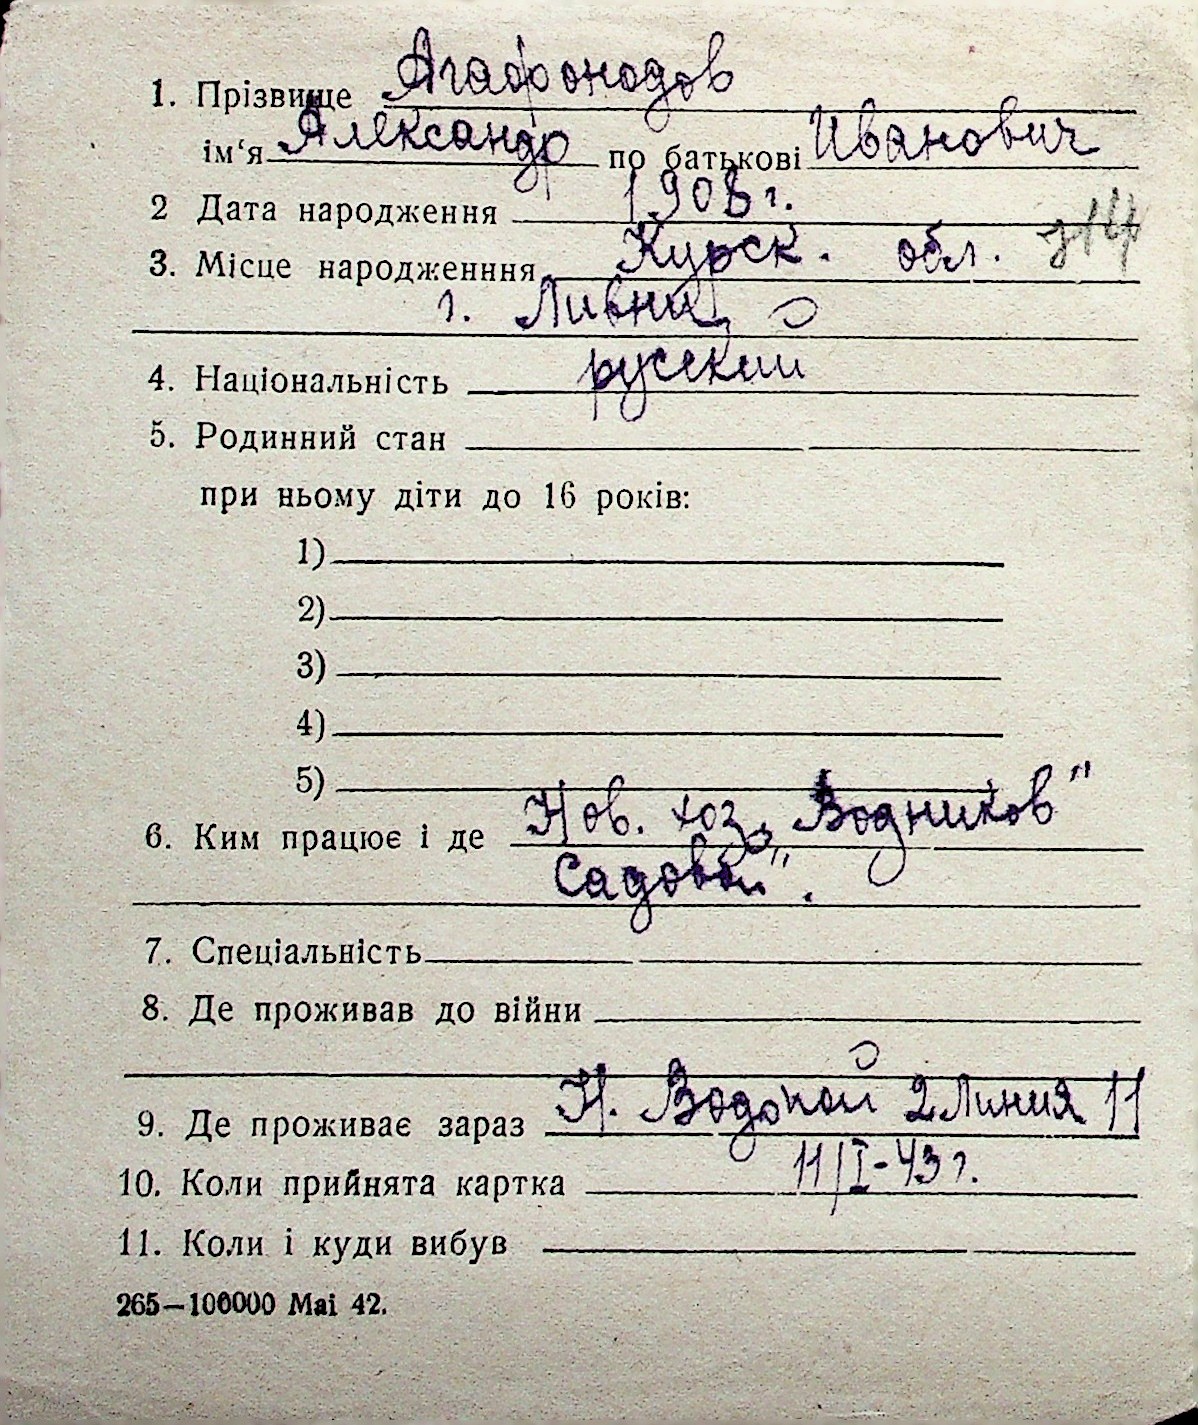 1. Прізвище Агафонодов
ім‘я Александр по батькові Иванович
2 Дата народження 1908 г.
314
3. Місце народженння Курск. обл.
г. Ливны
4. Національність русский
5. Родинний стан
при ньому діти до 16 років:
1)
2)
3)
4)
5)
6. Ким працює і де Нов. хоз „Водников"
Садовой".
7. Спеціальність
8. Де проживав до війни
9. Де проживає зараз Н. Водопой 2 Линия 11
10. Коли прийнята картка 11/I-43 г.
11. Коли і куди вибув
265—100000 Mai 42.